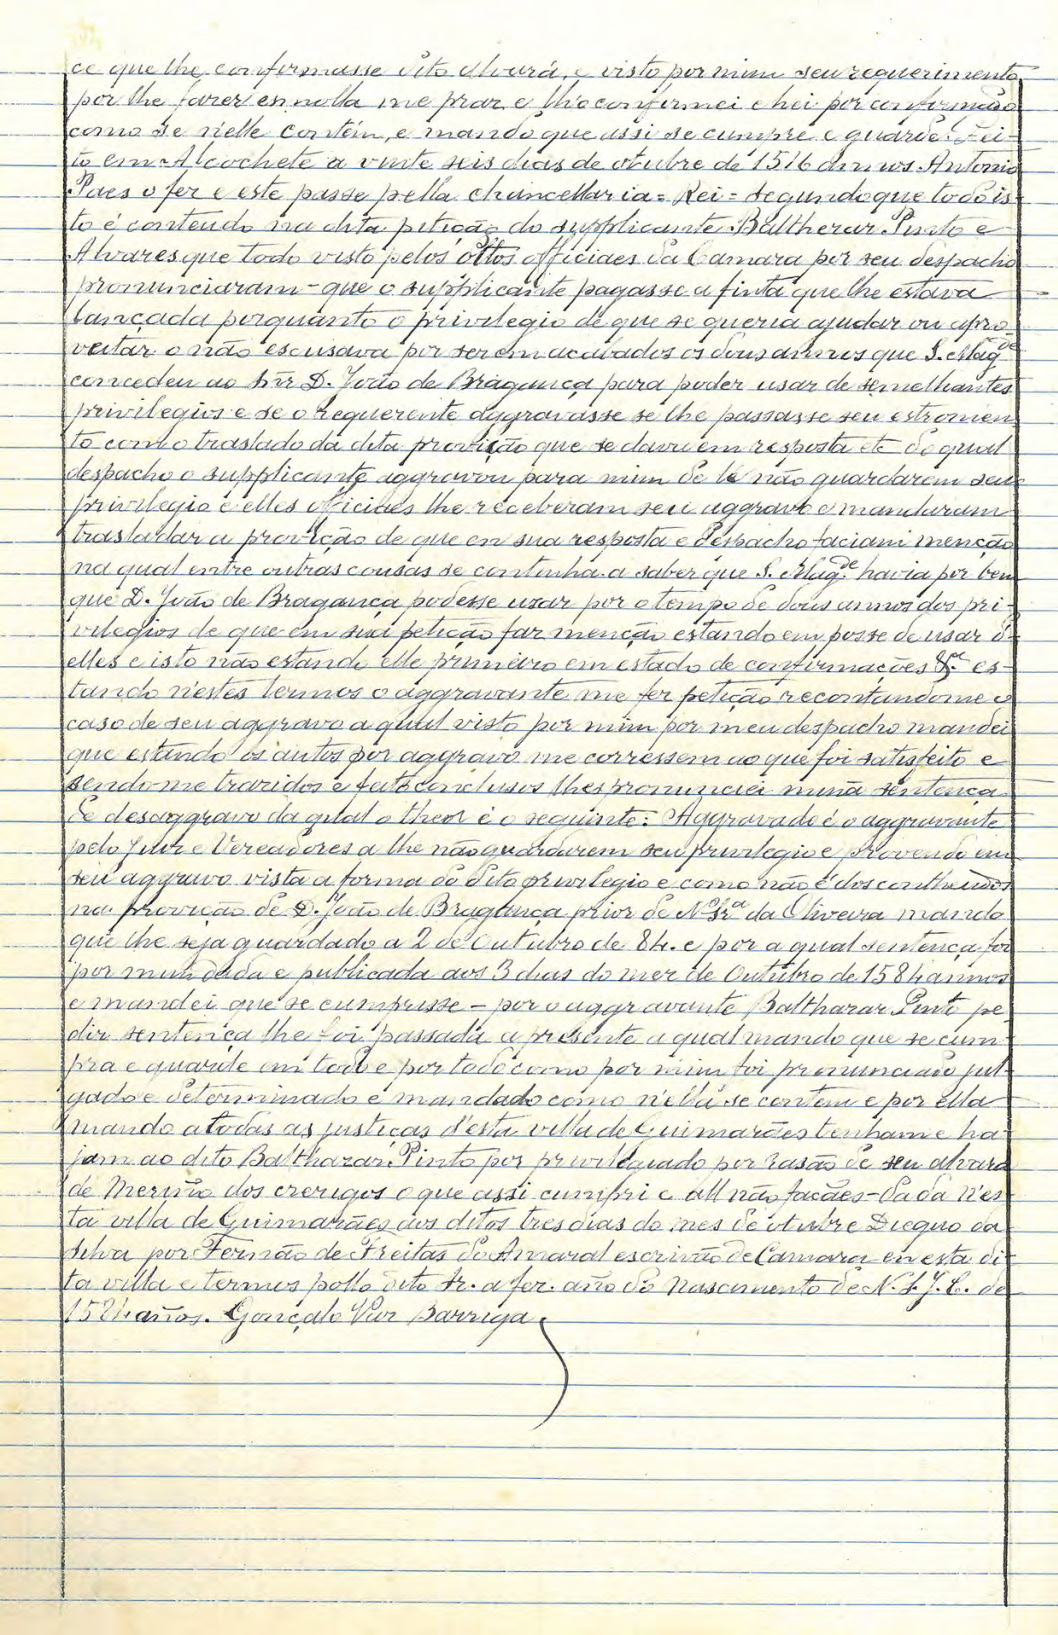 ce que lhe confirmasse dito alvará, e visto por mim seu requerimento
por lhe fazer esmolla me praz e lh'o confirmei e hei por confirmado
como se n'elle contém, e mando que assi se cumpre e guarde. Fei-
to em Alcochete a vinte seis dias de otubre de 1516 annos. Antonio
Paes o fez e este passe pella chancellaria = Rei = segundo que todo is-
to é contendo na dita petição do supplicante Balthezar Pinto e
Alvares que todo visto pelos dittos officiaes da Camara por seu despacho
pronunciaram - que o supplicante pagasse a finta que lhe estava
lançada porquanto o privilegio de que se queria ajudar ou apro-
veitar o não escusava por serem acabados os dous annos que S. Mag.de
concedeu ao Snr D. João de Bragança para poder usar de semelhantes
privilegios e se o requerente aggravasse se lhe passasse seu estromen
to com o traslado da dita provição que se dava em resposta etc do qual
despacho o supplicante aggravou para mim de lé não guardarem seu
privilegio e elles officiaes lhe receberam seu aggravo e mandaram
trasladar a provição de que em sua resposta e despacho faciam menção
na qual entre outras cousas se continha a saber que S. Mag.de havia por bem
que D. João de Bragança podesse uzar por o tempo de dous annos dos pri-
vilegios de que em sua petição faz menção estando em posse de usar d'
elles e isto não estando elle primeiro em estado de confirmações &.a es-
tando n'estes termos o aggravante me fez petição recontandome o
caso de seu aggravo a qual visto por mim por meu despacho mandei
que estando os autos por aggravo me corressem ao que foi satisfeito e
sendo-me trazidos e fatos conclusos lhes pronunciei minã sentença
de desaggravo da qual o theor é o seguinte: Aggravado é o aggravante
pelo Juiz e Vereadores a lhe não guardarem seu privilegio e provendo em
seu aggravo vista a forma do dito privilegio e como não é dos contheudos
na provição de D. João de Bragança prior de N.a Sr.a da Oliveira mando
que lhe seja guardado a 2 de Outubro de 84. e por a qual sentença foi
por mim dada e publicada aos 3 dias do mez de Outubro de 1584 annos
e mandei que se cumprisse - por o aggravante Balthazar Pinto pe-
dir sentença lhe foi passada a presente a qual mando que se cum-
pra e guarde em todo e por todo como por mim foi pronunciado jul-
gado e determinado e mandado como n'ella se contem e por ella
mando a todas as justiças d'esta villa de Guimarães tenham e ha-
jam ao dito Balthazar Pinto por privilegiado por rasão de seu alvará
de Meriño dos crerigos o que assi cumpri e all não façães - Dada n'es-
ta villa de Guimarães aos ditos tres dias do mes de otubre Dieguo da
Silva por Fernão de Freitas do Amaral escrivão de Camara en esta di-
ta villa e termos pollo dito Sr. a fez. año do Nascimento de N. S. J. C. de
1584 años. Gonçalo Vaz Barriga.